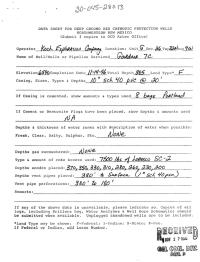 30-045-28013
DATA SHEET FOR DEEP GROUND BED CATHODIC PROTECTION WELLS
NORTHWESTERN NEW MEXICO
(Submit 3 copies to OCD Aztec Office)
Operator Koch Exploration Company Location: Unit
Name of Well/Wells or Pipeline Serviced Gardner 7C
Elevation Completion Date Total Depth 385' Land Type* F
Casing, Sizes, Types & Depths 10" Sch 40 pvc @ 20'
If Casing is cemented, show amounts & types used 8 bags Portland
If Cement or Bentonite Plugs have been placed, show depths & amounts used
NA
Depths & thickness of water zones with description of water when possible:
Fresh, Clear, Salty, Sulphur, Etc. None
Depths gas encountered: None
Type & amount of coke breeze used: 7500 lbs of Loresco SC-2
Depths anodes placed: 370, 350, 330, 310,
Depths vent pipes placed: 380' to Surface (1" Sch 40 pvc)
Vent pipe perforations: 380' to 160'
Remarks:
If any of the above data is unavailable, please indicate so. Copies of all
logs, including Drillers Log, Water Analyses & Well Bore Schematics should
be submitted when available. Unplugged abandoned wells are to be included.
*Land Type may be shown: F-Federal; I-Indian; S-State; P-Fee.
If Federal or Indian, add Lease Number.
RECEIVED
OIL CON. DIV.
DIST. 3